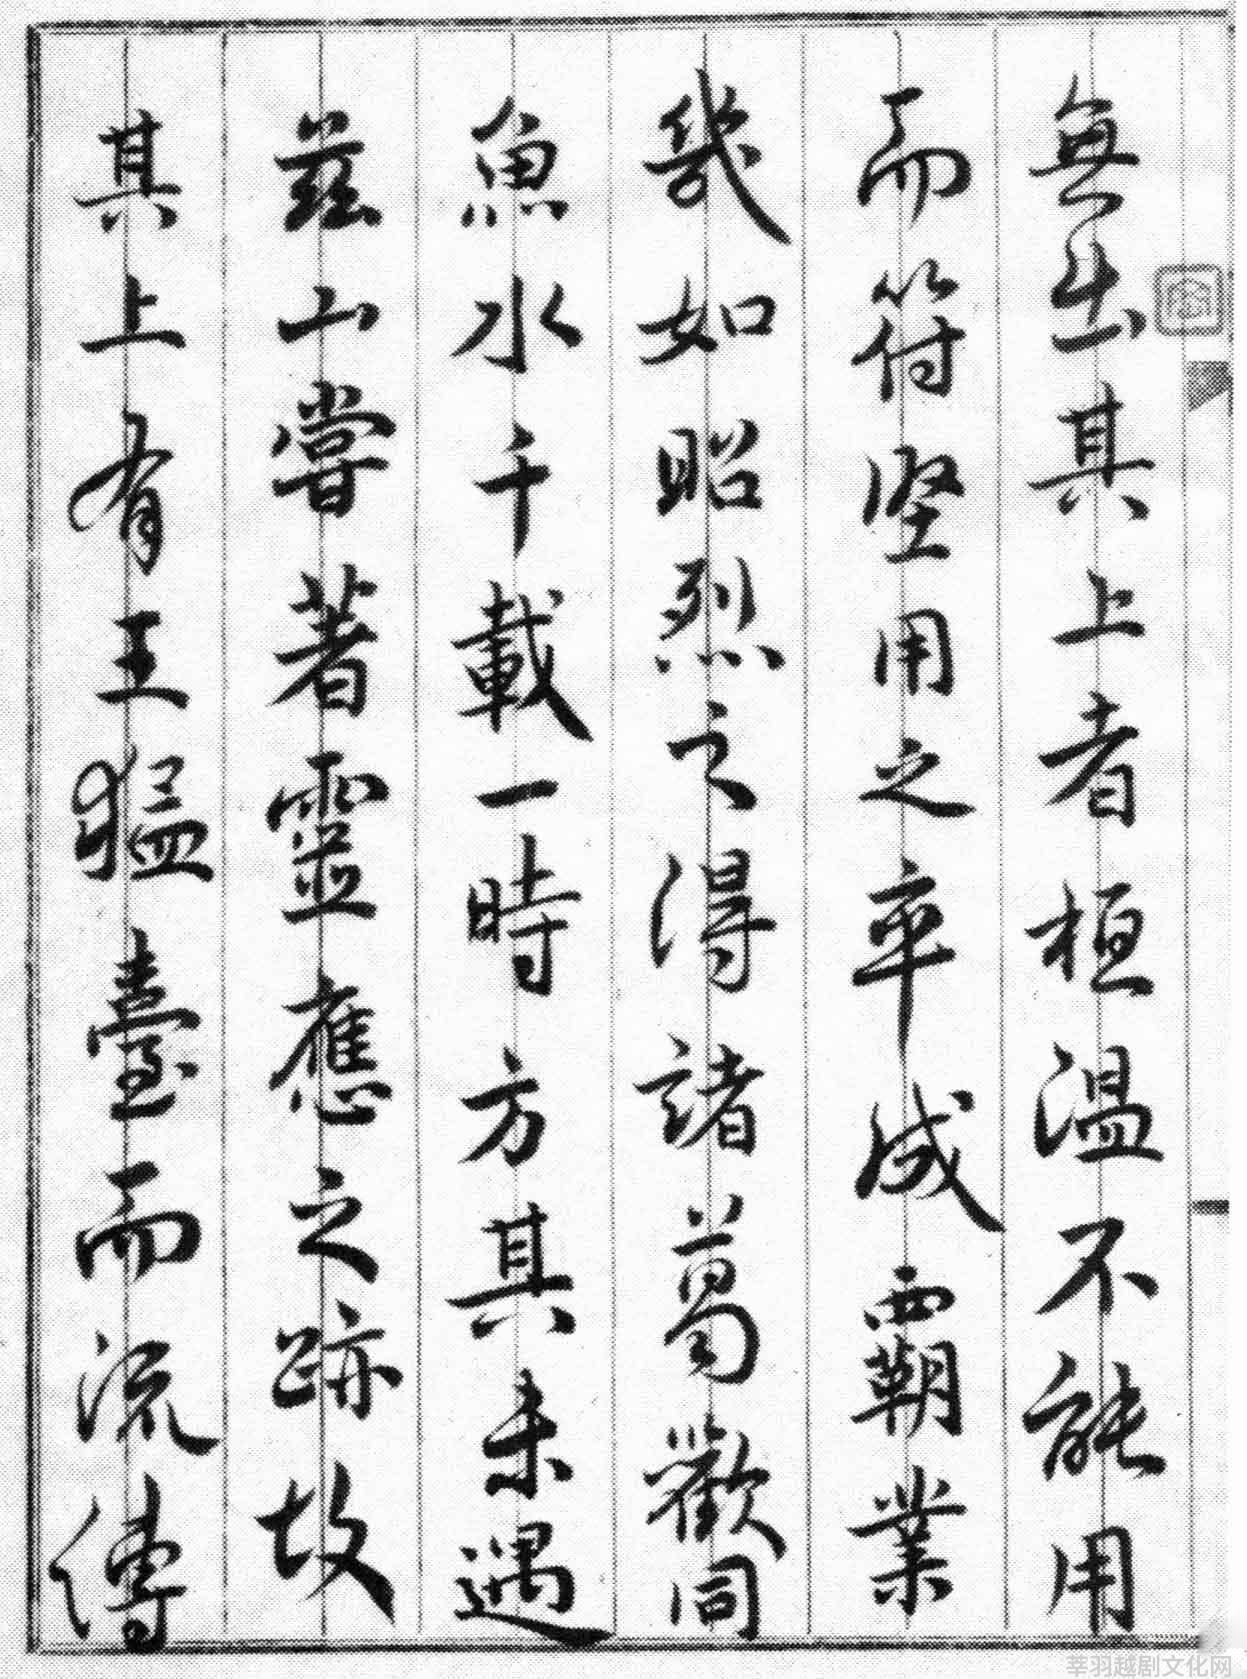 無出其上者桓温不能用
而符堅用之卒成覇業
幾如昭烈之得諸葛歡同
魚水千載一時方其未遇
茲山嘗著靈應之跡故
其上有王猛臺而流傳
莘羽越剧文化网